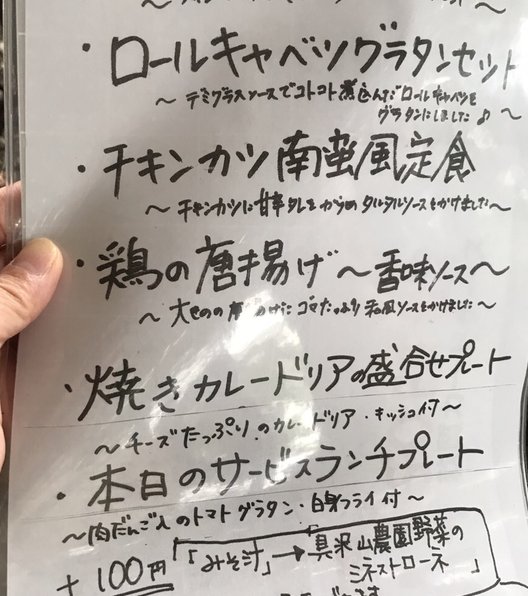 ・ロールキャベツグラタンセット
～デミグラスソースでコトコト煮込んだロールキャベツを
グラタンにしました♪～
・チキンカツ南蛮風定食
～チキンカツに甘辛タレをからめタルタルソースをかけました～
・鶏の唐揚げ～香味ソース～
～大きめの唐揚げにゴマたっぷり和風ソースをかけました～
・焼きカレードリアの盛合せプレート
～チーズたっぷりのカレードリア・キッシュ付～
・本日のサービスランチプレート
～肉だんご入のトマトグラタン・白身フライ付～
+100円「みそ汁」→具沢山農園野菜の
ミネストローネ」